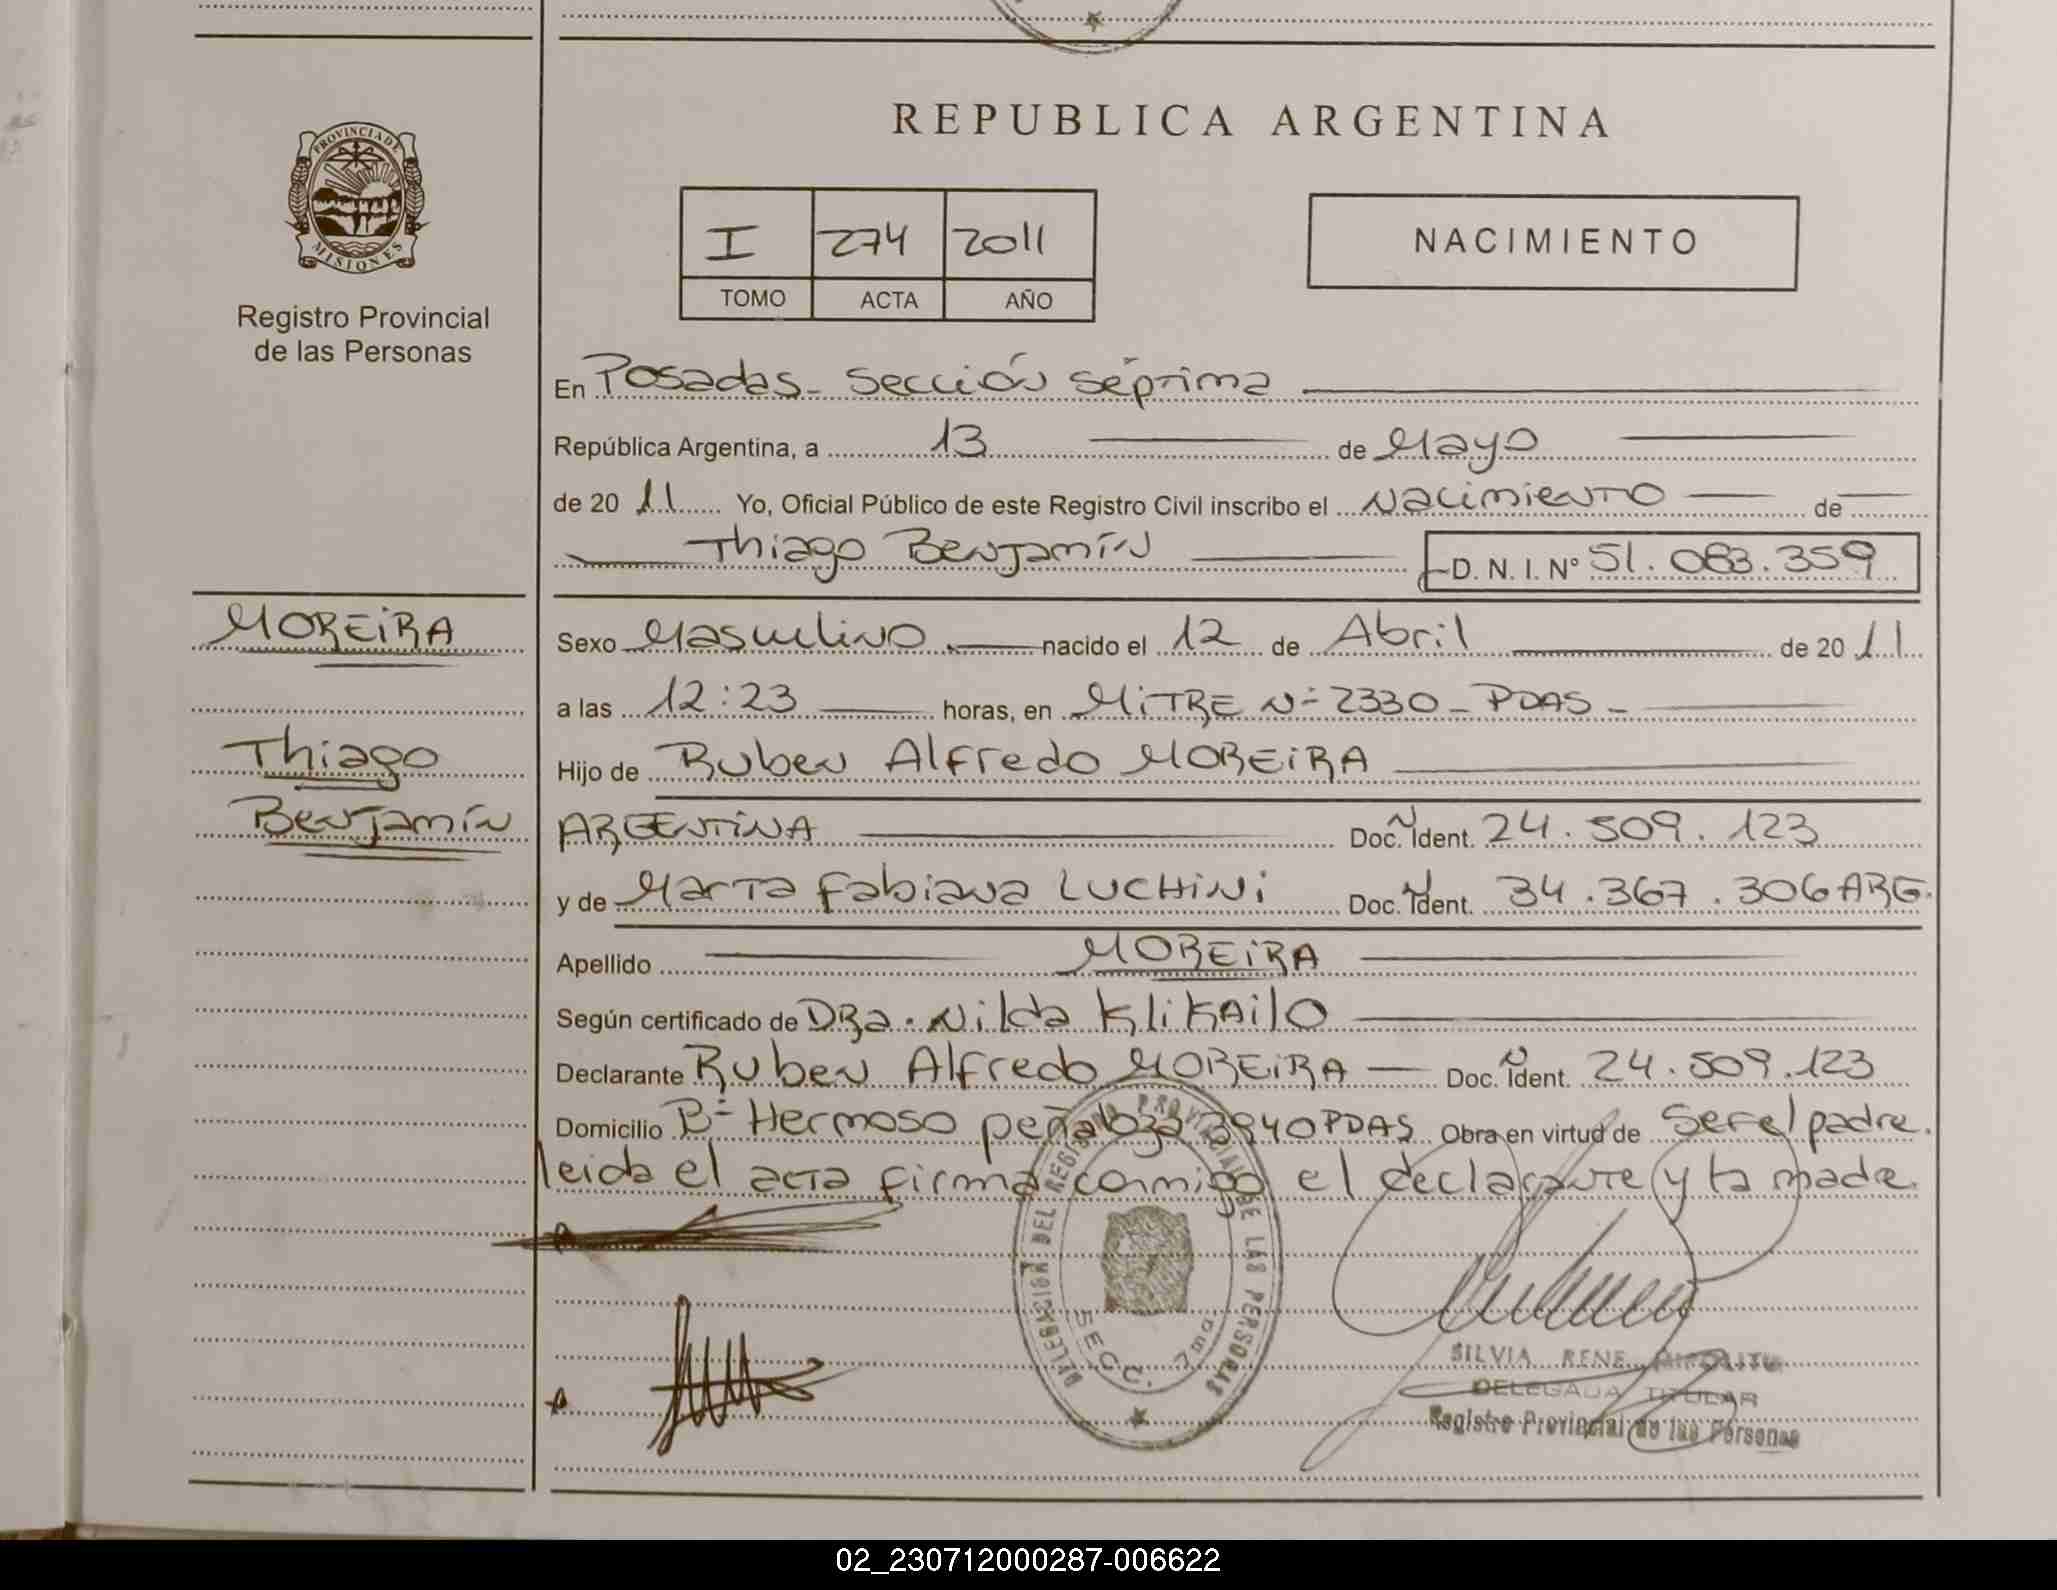 REPUBLICA ARGENTINA
PROVINCIA DE
MISIONES
Registro Provincial
de las Personas
I 274 2011
TOMO ACTA AÑO
NACIMIENTO
En Posadas - sección séptima
República Argentina, a 13 de Mayo
de 20 11 Yo, Oficial Público de este Registro Civil inscribo el Nacimiento de
Thiago Benjamín D. N. I. Nº 51.083.359
MOREIRA
Thiago
Benjamín
Sexo Masculino nacido el 12 de Abril de 20 11
a las 12:23 horas, en MITRE Nº 2330 - PDAS -
Hijo de Ruben Alfredo MOREIRA
ARGENTINA Doc. Ident. 24.509.123
y de Marta Fabiana LUCHINI Doc. Ident. 34.367.306 ARG.
Apellido MOREIRA
Según certificado de DRa. Nilda KliKAilO
Declarante Ruben Alfredo MOREIRA Doc. Ident. 24.509.123
Domicilio Bº Hermoso peñaloza 3940 PDAS Obra en virtud de ser el padre.
leida el acta firma conmigo el declarante y la madre.
DELEGACION DEL REGISTRO PROVINCIAL DE LAS PERSONAS
SECC. 7ma.
SILVIA RENE
DELEGADA TITULAR
Registro Provincial de las Personas
02_230712000287-006622